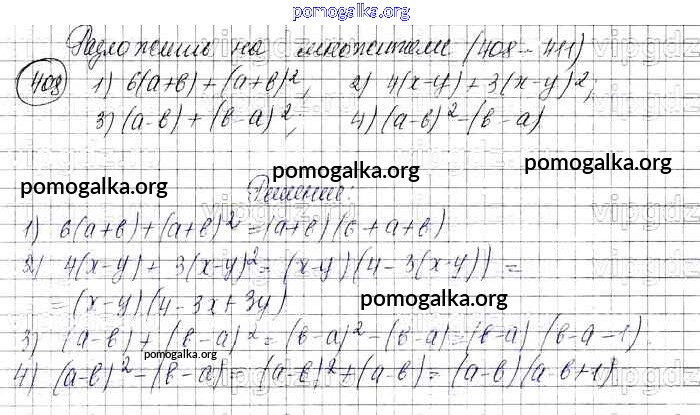 pomogalka.org
Разложить на множители (408 - 411)
408 1) 6(a+b) + (a+b)², 2) 4(x-y) + 3(x-y)²,
3) (a-b) + (b-a)², 4) (a-b)² - (b-a)
pomogalka.org pomogalka.org
pomogalka.org
Решение:
1) 6(a+b) + (a+b)² = (a+b)(6+a+b)
2) 4(x-y) + 3(x-y)² = (x-y)(4-3(x-y)) =
= (x-y)(4-3x+3y)
pomogalka.org
3) (a-b) + (b-a)² = (b-a)² - (b-a) = (b-a)(b-a-1)
pomogalka.org
4) (a-b)² - (b-a) = (a-b)² + (a-b) = (a-b)(a-b+1)